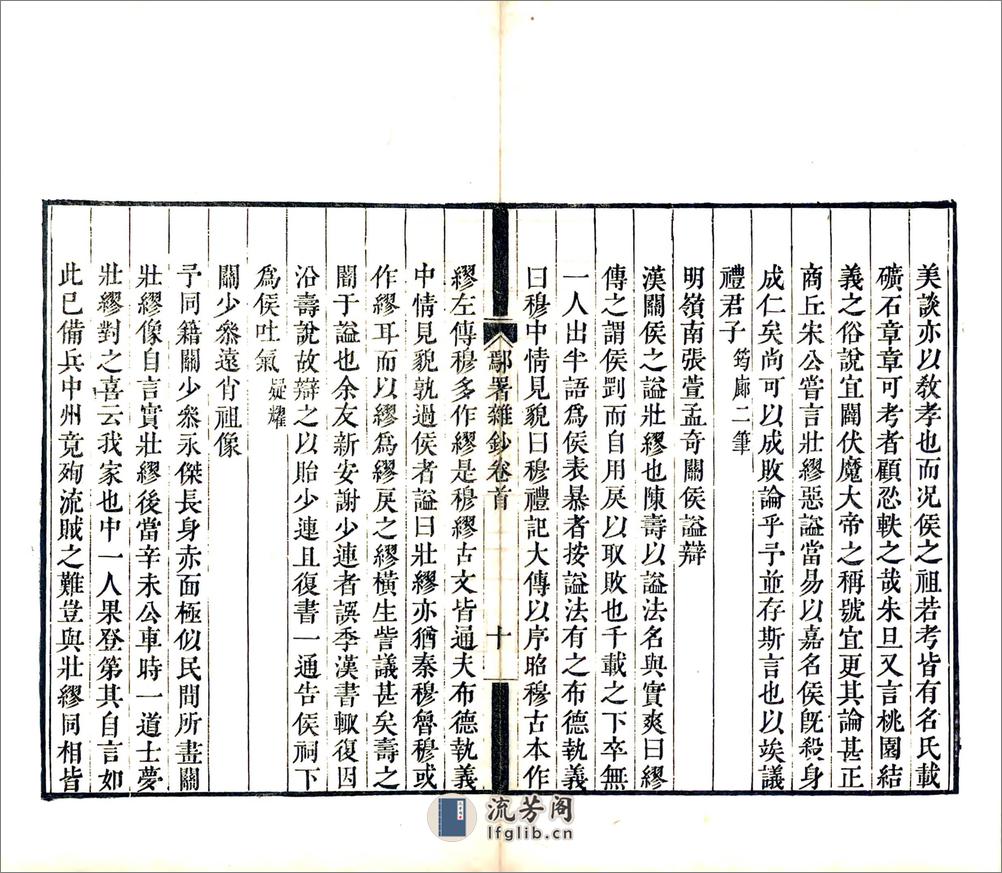 美談亦以敎孝也而况侯之祖若考皆有名氏載
礦石章章可考者顧忍軼之哉朱旦又言桃園結
義之俗說宜闢伏魔大帝之稱號宜更其論甚正
商丘宋公嘗言壯繆惡謚當易以嘉名侯旣殺身
成仁矣尚可以成敗論乎予並存斯言也以竢議
禮君子 筠廊二筆
明嶺南張萱孟奇關侯謚辯
漢關侯之謚壯繆也陳壽以謚法名與實爽曰繆
傳之謂侯剛而自用戾以取敗也千載之下卒無
一人出半語爲侯表暴者按謚法有之布德執義
曰穆中情見貌曰穆禮記大傳以序昭穆古本作
鄢署雜鈔卷首
十
繆左傳穆多作繆是穆繆古文皆通夫布德執義
中情見貌孰過侯者謚曰壯繆亦猶秦穆魯穆或
作繆耳而以繆爲繆戾之繆橫生訾議甚矣壽之
闇于謚也余友新安謝少連者誤季漢書輙復因
沿壽說故辯之以貽少連且復書一通告侯祠下
爲侯吐氣 疑耀
關少叅遠肖祖像
予同籍關少叅永傑長身赤面極似民間所畫關
壯繆像自言實壯繆後當辛未公車時一道士夢
壯繆對之喜云我家也中一人果登第其自言如
此已備兵中州竟殉流賊之難豈與壯繆同相皆
流芳阁
lfglib.cn